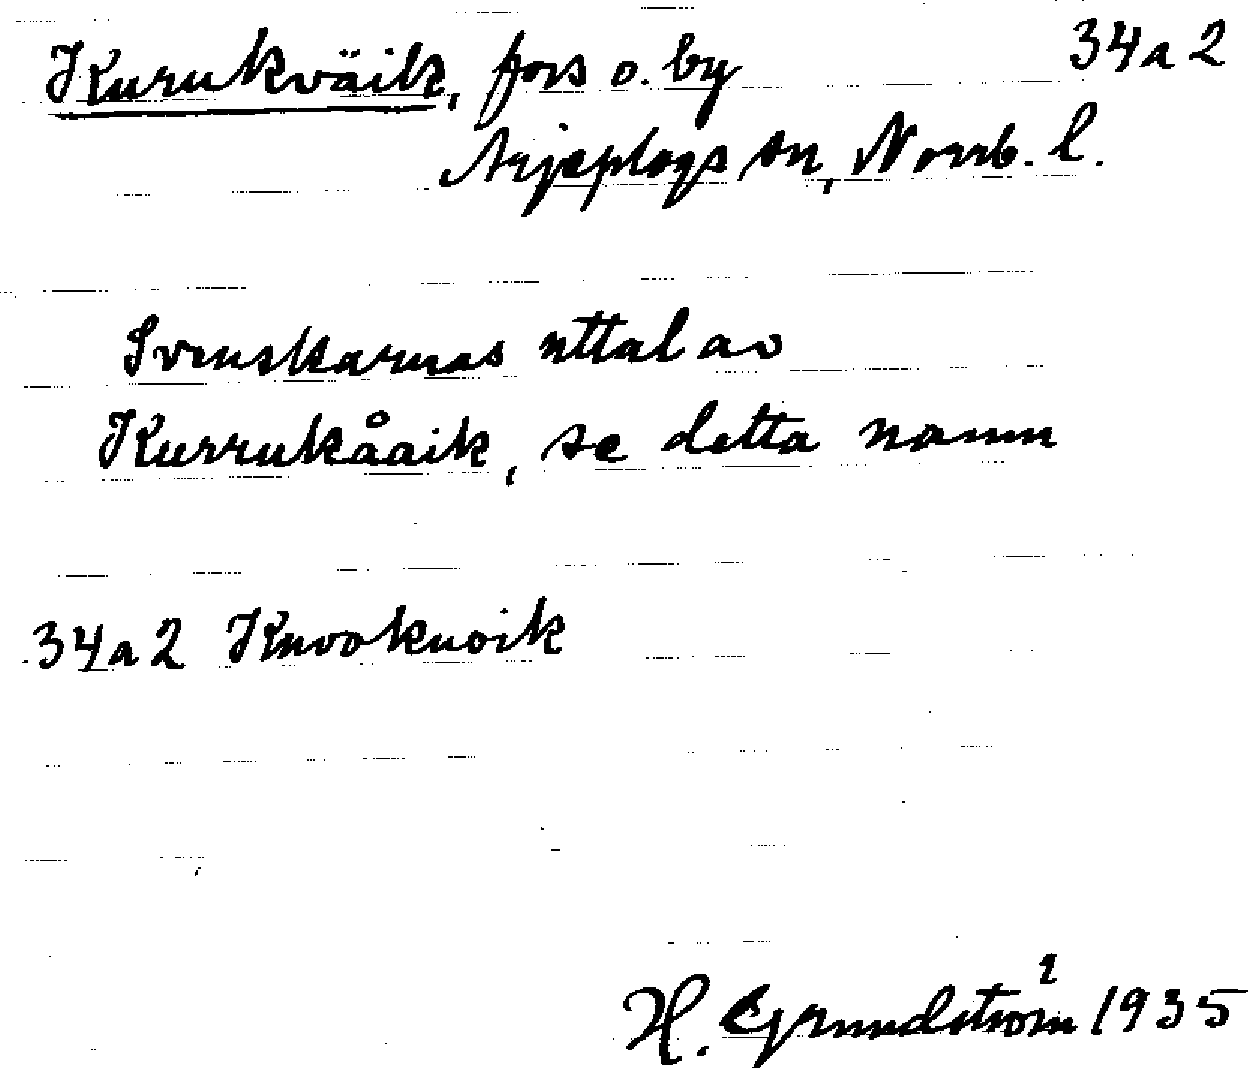 Kurukväik, fors o. by 34a2
Arjeplogs sn, Norrb. l.
Svenskarnas uttal av
Kurrukåaik, se detta namn
34a2 Kuvokuoik
H. Grundström 1935